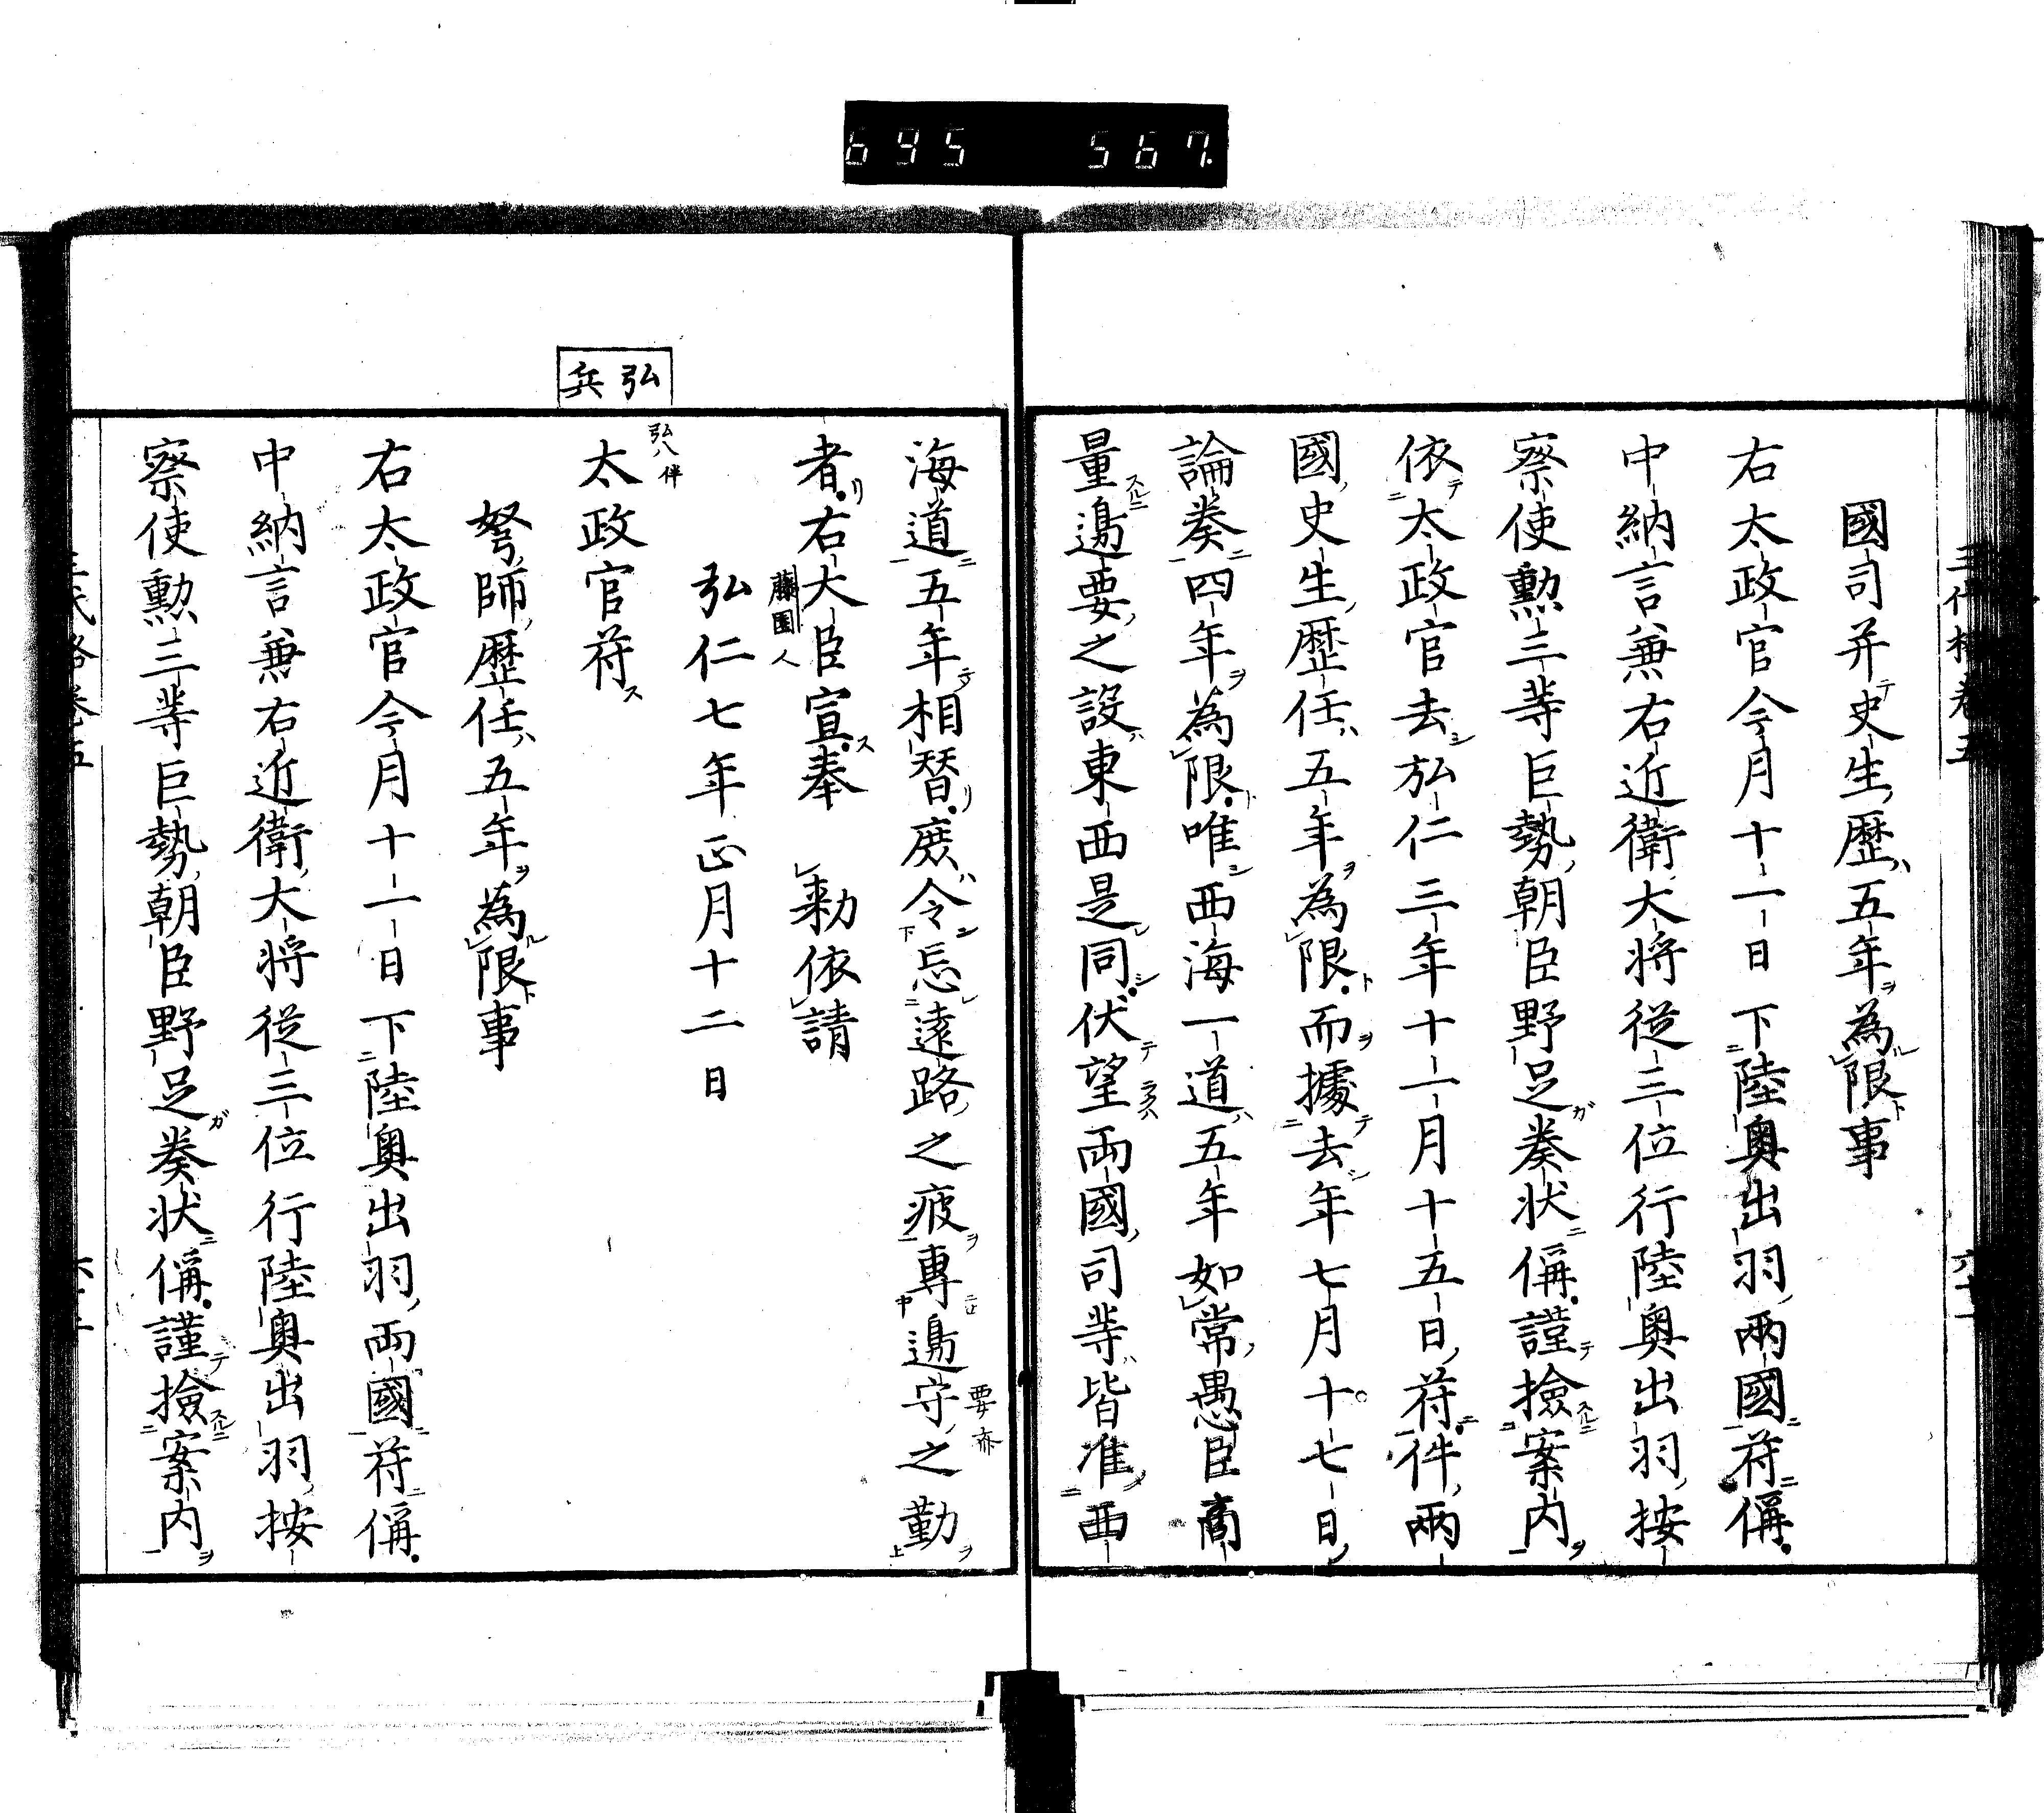 695 567.
國司并史生歷五年為限事
右太政官今月十一日下陸奧出羽兩國符偁
中納言兼右近衛大将從三位行陸奧出羽按
察使勲三等巨勢朝臣野足奏状偁謹撿案内
依太政官去弘仁三年十一月十五日符件兩
國史生歷任五年為限而據去年七月十七日
論奏四年為限唯西海一道五年如常愚臣商
量邊要之設東西是同伏望兩國司等皆准西
海道五年相替庶令忘遠路之疲專邊守之勤
要 亦
者右大臣宣奉 勅依請
藤園人
弘仁七年正月十二日
弘兵
弘八 伴
太政官符
弩師歷任五年為限事
右太政官今月十一日下陸奧出羽兩國符偁
中納言兼右近衛大将從三位行陸奧出羽按
察使勲三等巨勢朝臣野足奏状偁謹撿案内